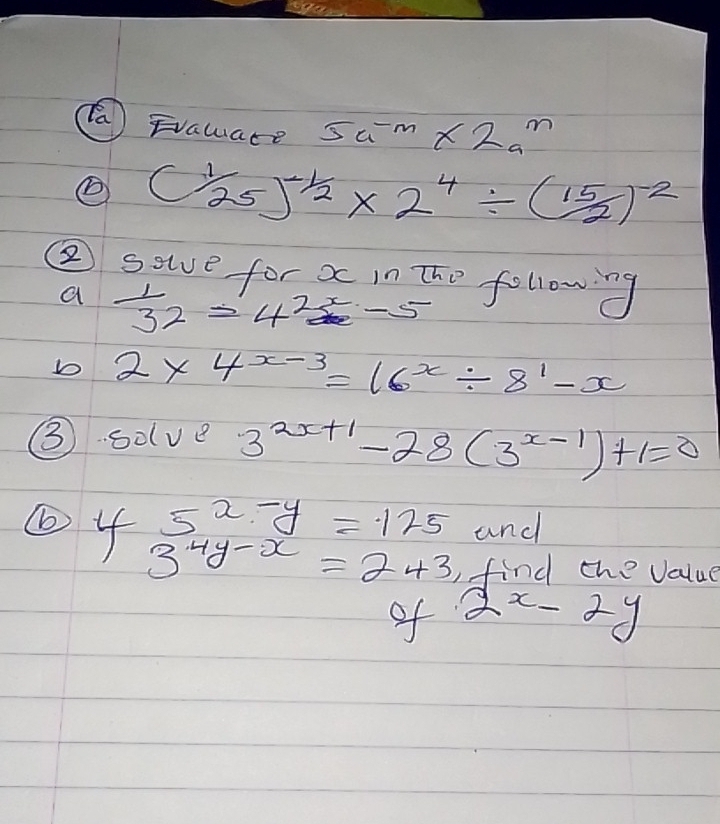 1a Evaluate 5a^-m × 2a^m
b (1/25)^-1/2 × 2^4 ÷ (15/2)^-2
2 Solve for x in the following
a 1/32 = 4^2x - 5
b 2 × 4^x-3 = 16^x ÷ 8^1-x
3 Solve 3^2x+1 - 28(3^x-1)+1=0
b If 5^x-y = 125 and
3^4y-x = 243, find the value
of 2^x- 2y